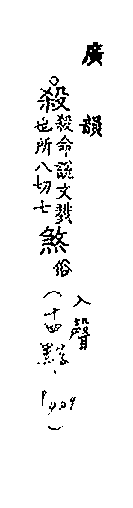 廣韻
殺殺命說文戮也所八切七煞俗
入聲
（十四黠，P.409）